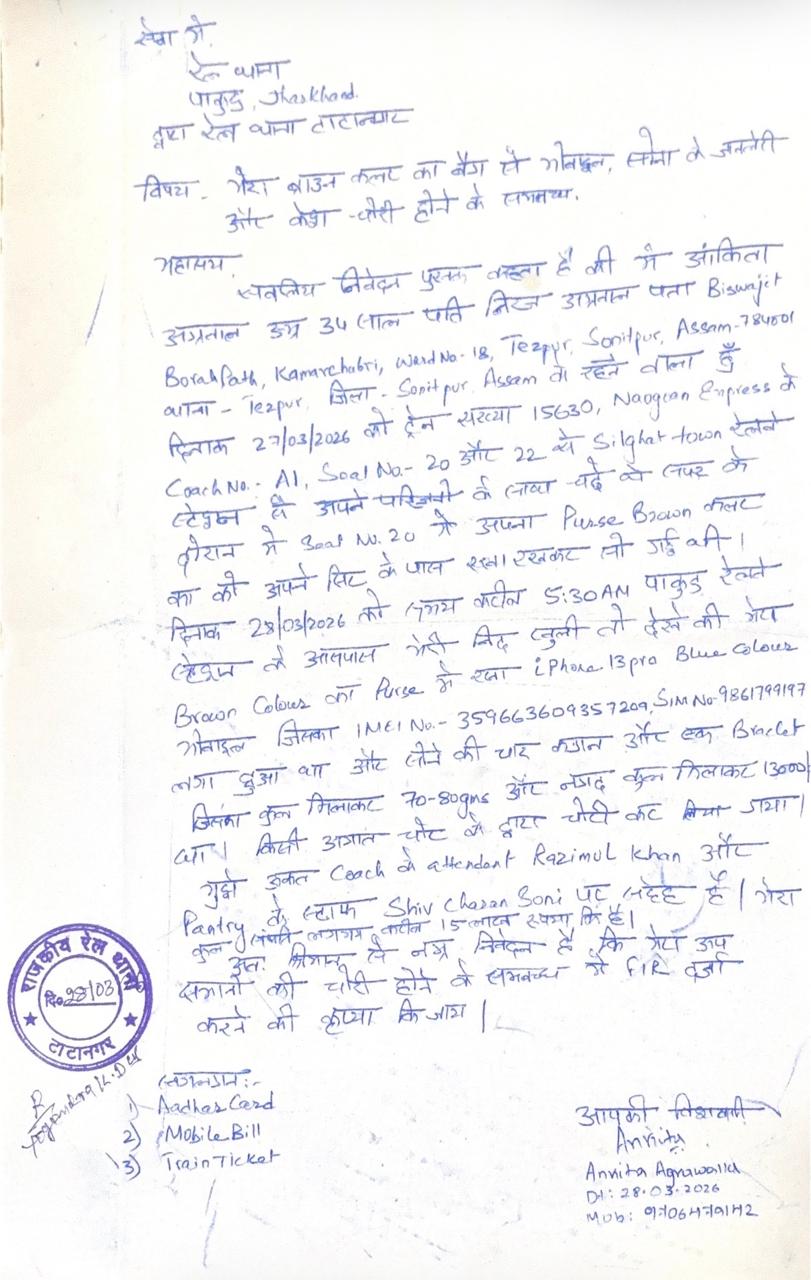 सेवा में
रेल थाना
पाकुड़, Jharkhand.
द्वारा रेल थाना टाटानगर
विषय - मेरा ब्राउन कलर का बैग से मोबाइल, सोना के जनलेरी
और कैश चोरी होने के सम्बन्ध.
महाशय,
सविनय निवेदन पुर्वक कहता है की मैं अंकिता
अग्रवाल उम्र 34 साल पति निरज अग्रवाल पता Biswajit
Borah Path, Kamarchabri, Ward No- 18, Tezpur, Sonitpur, Assam-784001
थाना - Tezpur, जिला - Sonitpur Assam के रहने वाला हूँ
दिनांक 27/03/2026 को ट्रेन संख्या 15630, Naogoan Express के
Coach No.- A1, Seat No.- 20 और 22 से Silghat town रेलवे
स्टेशन से अपने परिजनो के साथ चढ़े थे सफर के
दौरान मैं Seat No. 20 में अपना Purse Brown कलर
का को अपने सिट के पास रखकर सो गई थी।
दिनांक 28/03/2026 को समय करीब 5:30AM पाकुड़ रेलवे
स्टेशन के आसपास मेरी निंद खुली तो देखे की मेरा
Brown Colour का Purse में रखा iPhone 13 pro Blue Colour
मोबाइल जिसका IMEI No.- 359663609357209, SIM No-9861799197
लगा हुआ था और सोने की चार कंगन और एक Braclet
जिसका कुल मिलाकर 70-80gms और नगद कुल मिलाकर 13000/
था। किसी अज्ञात चोर के द्वारा चोरी कर लिया गया।
मुझे उक्त Coach के attendent Razimul Khan और
Pantry के स्टाफ Shiv Charan Soni पर संदेह है। मेरा
कुल संपति लगभग करीब 15 लाख रुपया कि है।
अतः श्रीमान से नम्र निवेदन है कि मेरा उप
समानो की चोरी होने के सम्बन्ध में FIR दर्ज
करने की कृप्या कि जाय।
राजकीय रेल थाना
दि० 28/03
टाटानगर
संलग्न :-
1) Aadhar Card
2) Mobile Bill
3) Train Ticket
आपकी विश्वासी
Anrita
Anrita Agrawalla
Dt: 28.03.2026
Mob: 9706479142